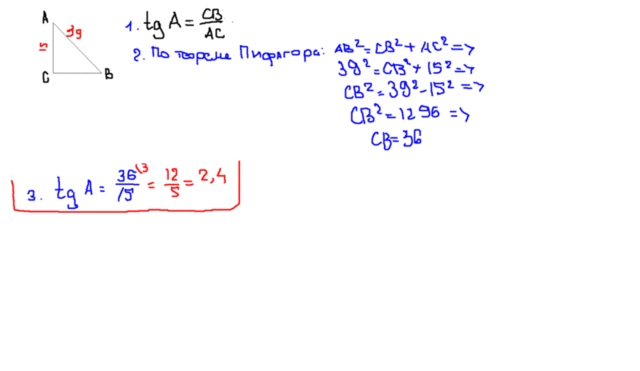 A
39
15
C
B
1. tg A = CB/AC
2. По теореме Пифагора: AB² = CB² + AC² =>
39² = CB² + 15² =>
CB² = 39² - 15² =>
CB² = 1296 =>
CB = 36
3. tg A = 36\3/15 = 12/5 = 2,4